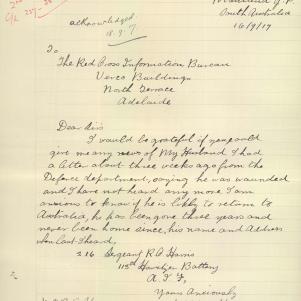 South Australia
16/9/17
acknowledged
18.9.7
To
The Red Cross Information Bureau
Verco Buildings
North Terrace
Adelaide
Dear Sirs
I would be grateful if you could
give me any news of My Husband I had
a letter about three weeks ago from the
Defence department, saying he was wounded
and I have not heard any more I am
anxious to know if he is likly to return to
Australia, he has been gone three years and
never been home since, his name and Address
when last I heard,
216 Sergeant R A Harris
Howitzer Battery
A.I.F,
Yours Anxiously